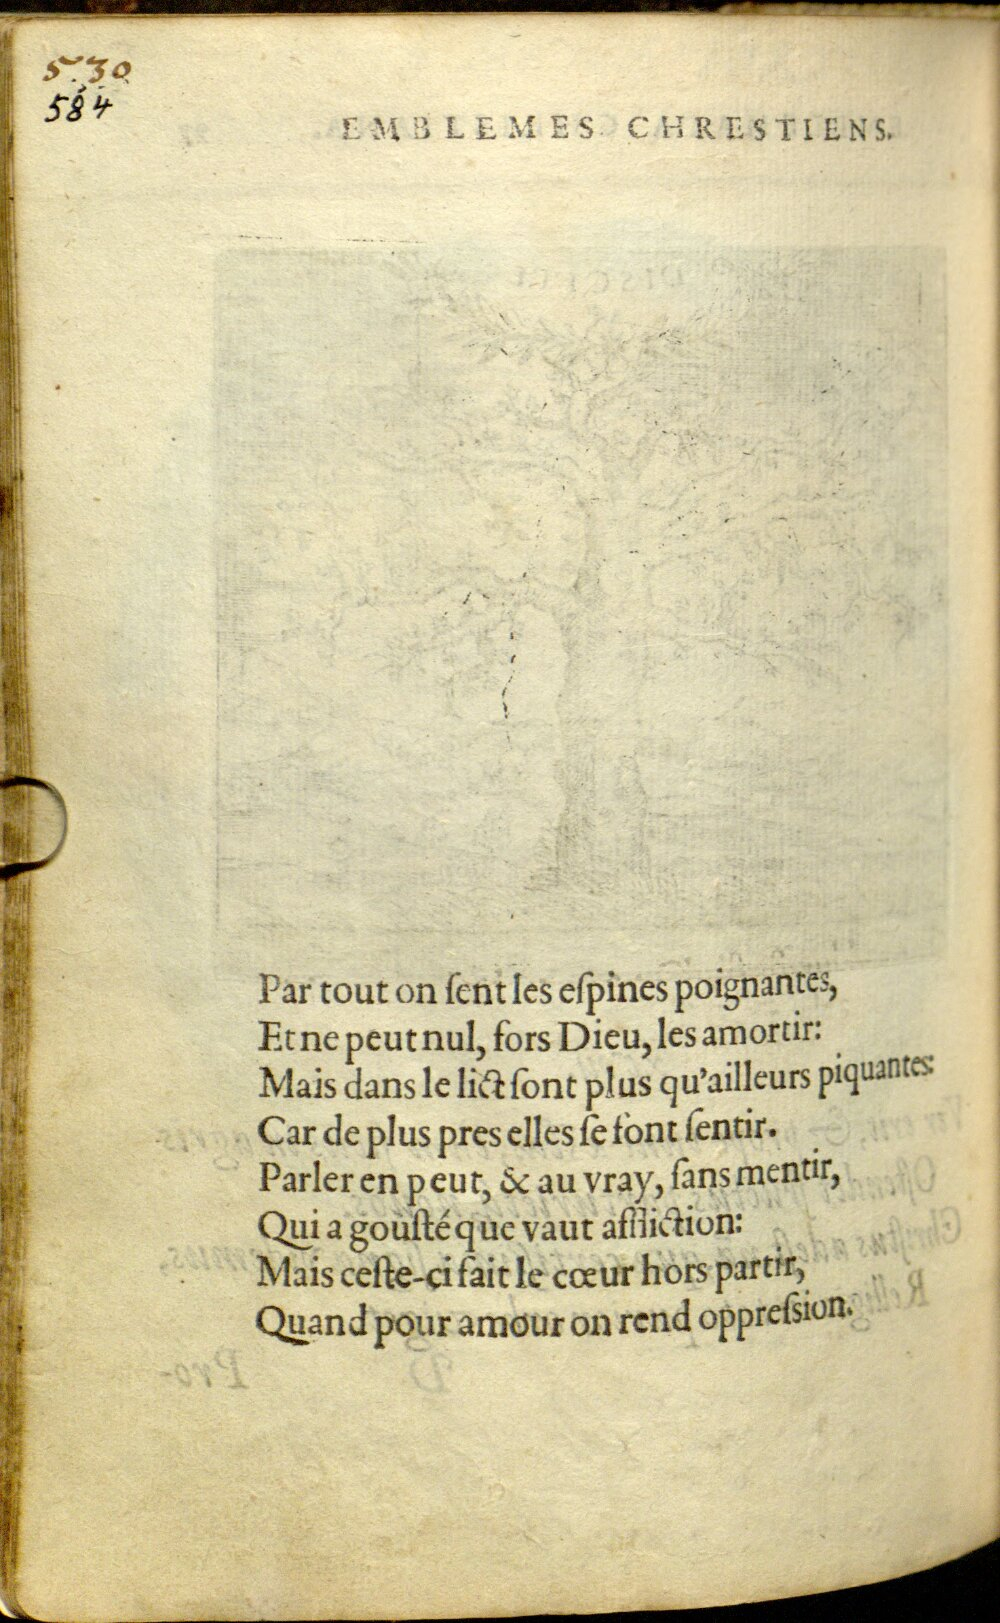 5.30
584
EMBLEMES CHRESTIENS.
Par tout on ſent les eſpines poignantes,
Et ne peut nul, fors Dieu, les amortir:
Mais dans le lict ſont plus qu'ailleurs piquantes:
Car de plus pres elles ſe font ſentir.
Parler en peut, & au vray, ſans mentir,
Qui a gouſté que vaut affliction:
Mais ceſte-ci fait le cœur hors partir,
Quand pour amour on rend oppreſsion.